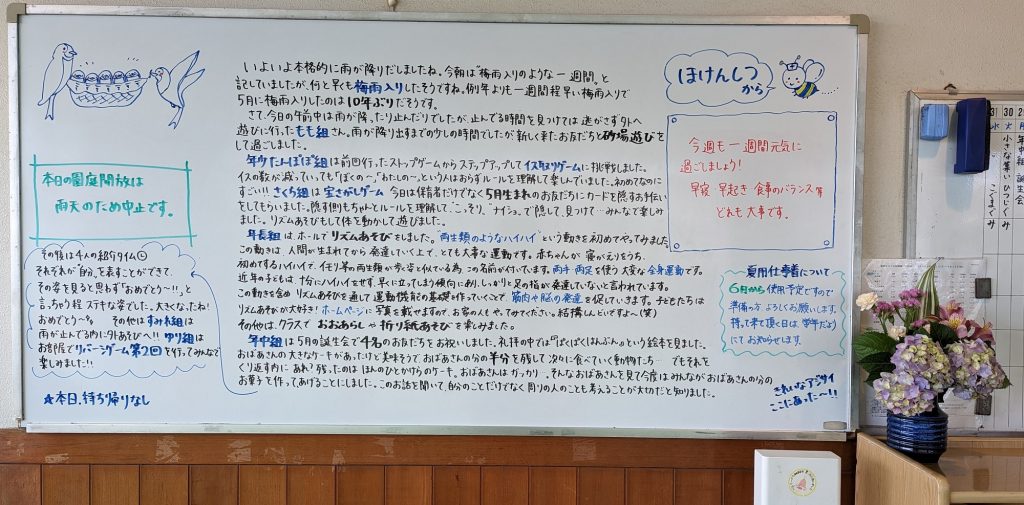 いよいよ本格的に雨が降りだしましたね。今朝は"梅雨入りのような一週間"と
記していましたが、何と早くも梅雨入りしたそうですね。例年より一週間程早い梅雨入りで
5月に梅雨入りしたのは10年ぶりだそうです。
さて、今日の午前中は雨が降ったり止んだりでしたが、止んでる時間を見つけては逃がさず外へ
遊びに行ったもも組さん。雨が降り出すまでの少しの時間でしたが新しく来たお友だちと砂場遊びを
して過ごしました。
年少たんぽぽ組は前回行ったストップゲームからステップアップしてイス取りゲームに挑戦しました。
イスの数が減っていっても「ぼくの〜」「わたしの〜」という人はおらずルールを理解して楽しんでいました。初めてなのに
すごい!! さくら組は宝さがしゲーム 今日は保育者だけでなく5月生まれのお友だちにカードを隠すお手伝い
をしてもらいました。隠す側もちゃんとルールを理解して、"こっそり、ナイショ"で隠して、見つけて…みんなで楽しみ
ました。リズムあそびもして体を動かして遊びました。
年長組は ホールでリズムあそびをしました。"両生類のようなハイハイ"という動きを初めてやってみました。
この動きは、人間が生まれてから発達していく上で、とても大事な運動です。赤ちゃんが寝がえりをうち、
初めてするハイハイで、イモリ等の両生類が歩く姿と似ている為、この名前が付いています。両手・両足を使う大変な全身運動です。
近年の子どもは、十分にハイハイをせず、早くに立ってしまう傾向にあり、しっかりと足の指が発達していないと言われています。
この動きを含めリズムあそびを通して運動機能の基礎を作っていくことで、筋肉や脳の発達を促していきます。子どもたちは
リズムあそびが大好き！ホームページに写真を載せますので、お家の人もやってみてください。結構しんどいですよ〜(笑)
その他は、クラスでおおあらしや折り紙あそびを楽しみました。
年中組は5月の誕生会で4名のお友だちをお祝いしました。礼拝の中では『ぱくぱくはんぶん』という絵本を見ました。
おばあさんの大きなケーキがあったけど美味そうで、おばあさんの分の半分を残して次々に食べていく動物たち… でもそれを
くり返す内に あれ？残ったのは ほんのひとかけらのケーキ。おばあさんはガッカリ…。そんなおばあさんを見て今度はみんながおばあさんの分の
お菓子を作ってあげることにしました。このお話を聞いて、自分のことだけでなく周りの人のことも考えることが大切だと知りました。
本日の園庭開放は
雨天のため中止です。
その後は4人の紹介タイム
それぞれが「自分」を表すことができて、
その姿を見ると思わず"おめでとう〜!!"と
言っちゃう程ステキな姿でした。大きくなったね！
おめでとう〜 その他はすみれ組は
雨が止んでる内に外あそびへ!! ゆり組は
お部屋でリバーシゲーム第2回を行ってみんなで
楽しみました!!
☆本日、持ち帰りなし
ほけんしつ
から
今週も一週間元気に
過ごしましょう！
早寝・早起き・食事のバランス等
どれも大事です。
夏用仕事着について
6月から使用予定ですので
準備の方よろしくお願いします。
持って来て頂く日は(学年だより)
にてお知らせします。
きれいなアジサイ
ここにあった〜!!
30
31
水
木
月
年中組 誕生会
小さな集い ひつじぐみ
こぐまぐみ